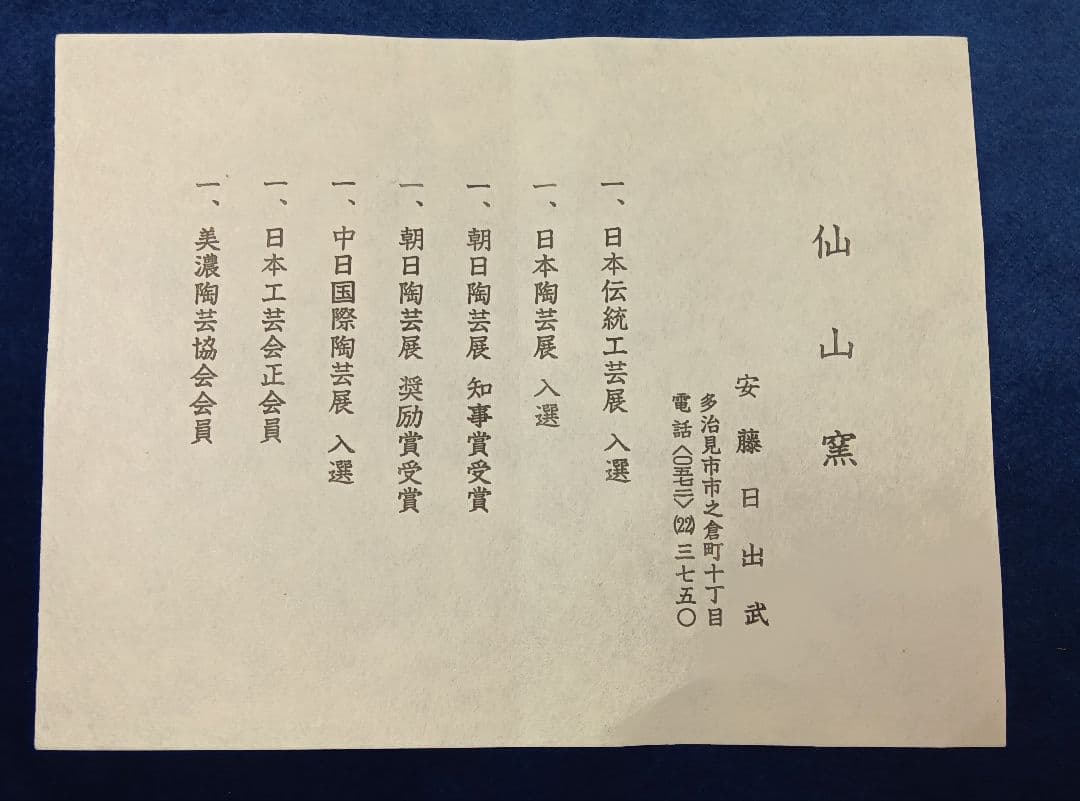 仙山窯
安藤日出武
多治見市市之倉町十丁目
電話〈〇五七二〉(22)三七五〇
一、日本伝統工芸展 入選
一、日本陶芸展 入選
一、朝日陶芸展 知事賞受賞
一、朝日陶芸展 奨励賞受賞
一、中日国際陶芸展 入選
一、日本工芸会正会員
一、美濃陶芸協会会員